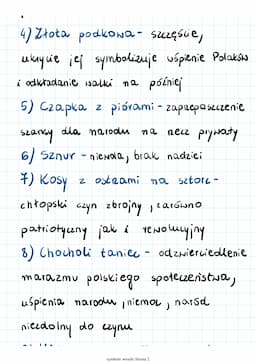 4) Złota podkowa - szczęście,
ukrycie jej symbolizuje uśpienie Polaków
i odkładanie walki na później
5) Czapka z piórami - zaprzepaszczenie
szansy dla narodu na rzecz prywaty
6) Sznur - niewola, brak nadziei
7) Kosy z ostrzami na sztorc -
chłopski czyn zbrojny, zarówno
patriotyczny jak i rewolucyjny
8) Chocholi taniec - odzwierciedlenie
marazmu polskiego społeczeństwa,
uśpienia narodu, niemoc, naród
niezdolny do czynu
symbole wesele Strona 2